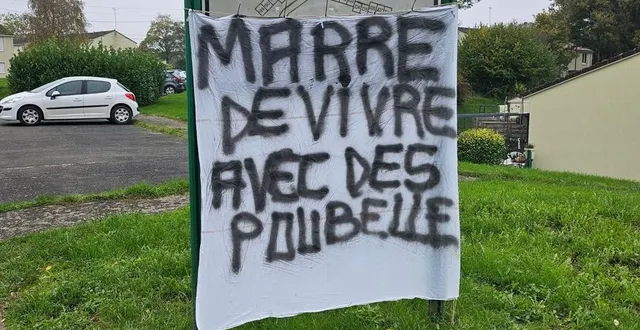 MARRE
DE VIVRE
AVEC DES
POUBELLE